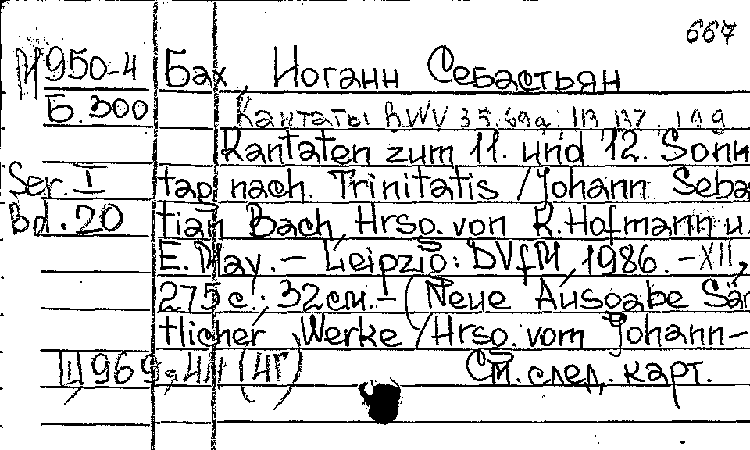 667
М950-4 Бах, Иоганн Себастьян
Б.300 Кантаты BWV 35, 69a, 113, 137, 199
Kantaten zum 11. und 12. Sonn
Ser. I tag nach. Trinitatis / Johann Seba
Bd. 20 tian Bach, Hrsg. von K. Hofmann u.
E. May. – Leipzig: DVfM, 1986. – XII,
275 с.; 32 см. – (Neue Ausgabe Säm
tlicher Werke / Hrsg. vom Johann–
Ц969,4Н (4Г) См. след. карт.